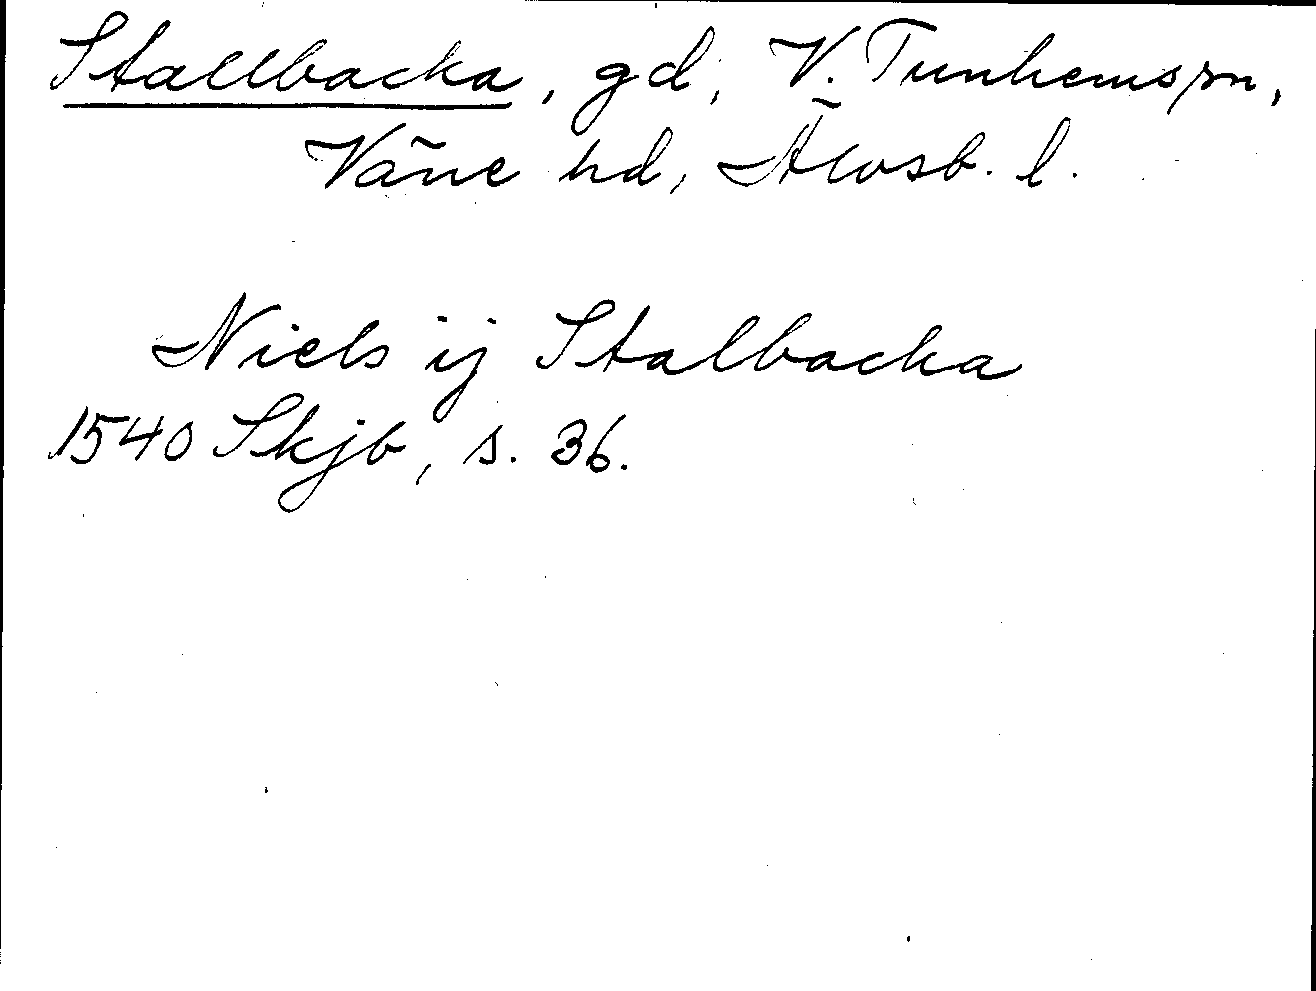 Stallbacka, gd, V. Tunhems sn,
Väne hd, Älvsb. l.
Niels ij Stalbacka
1540 Skjb, s. 36.